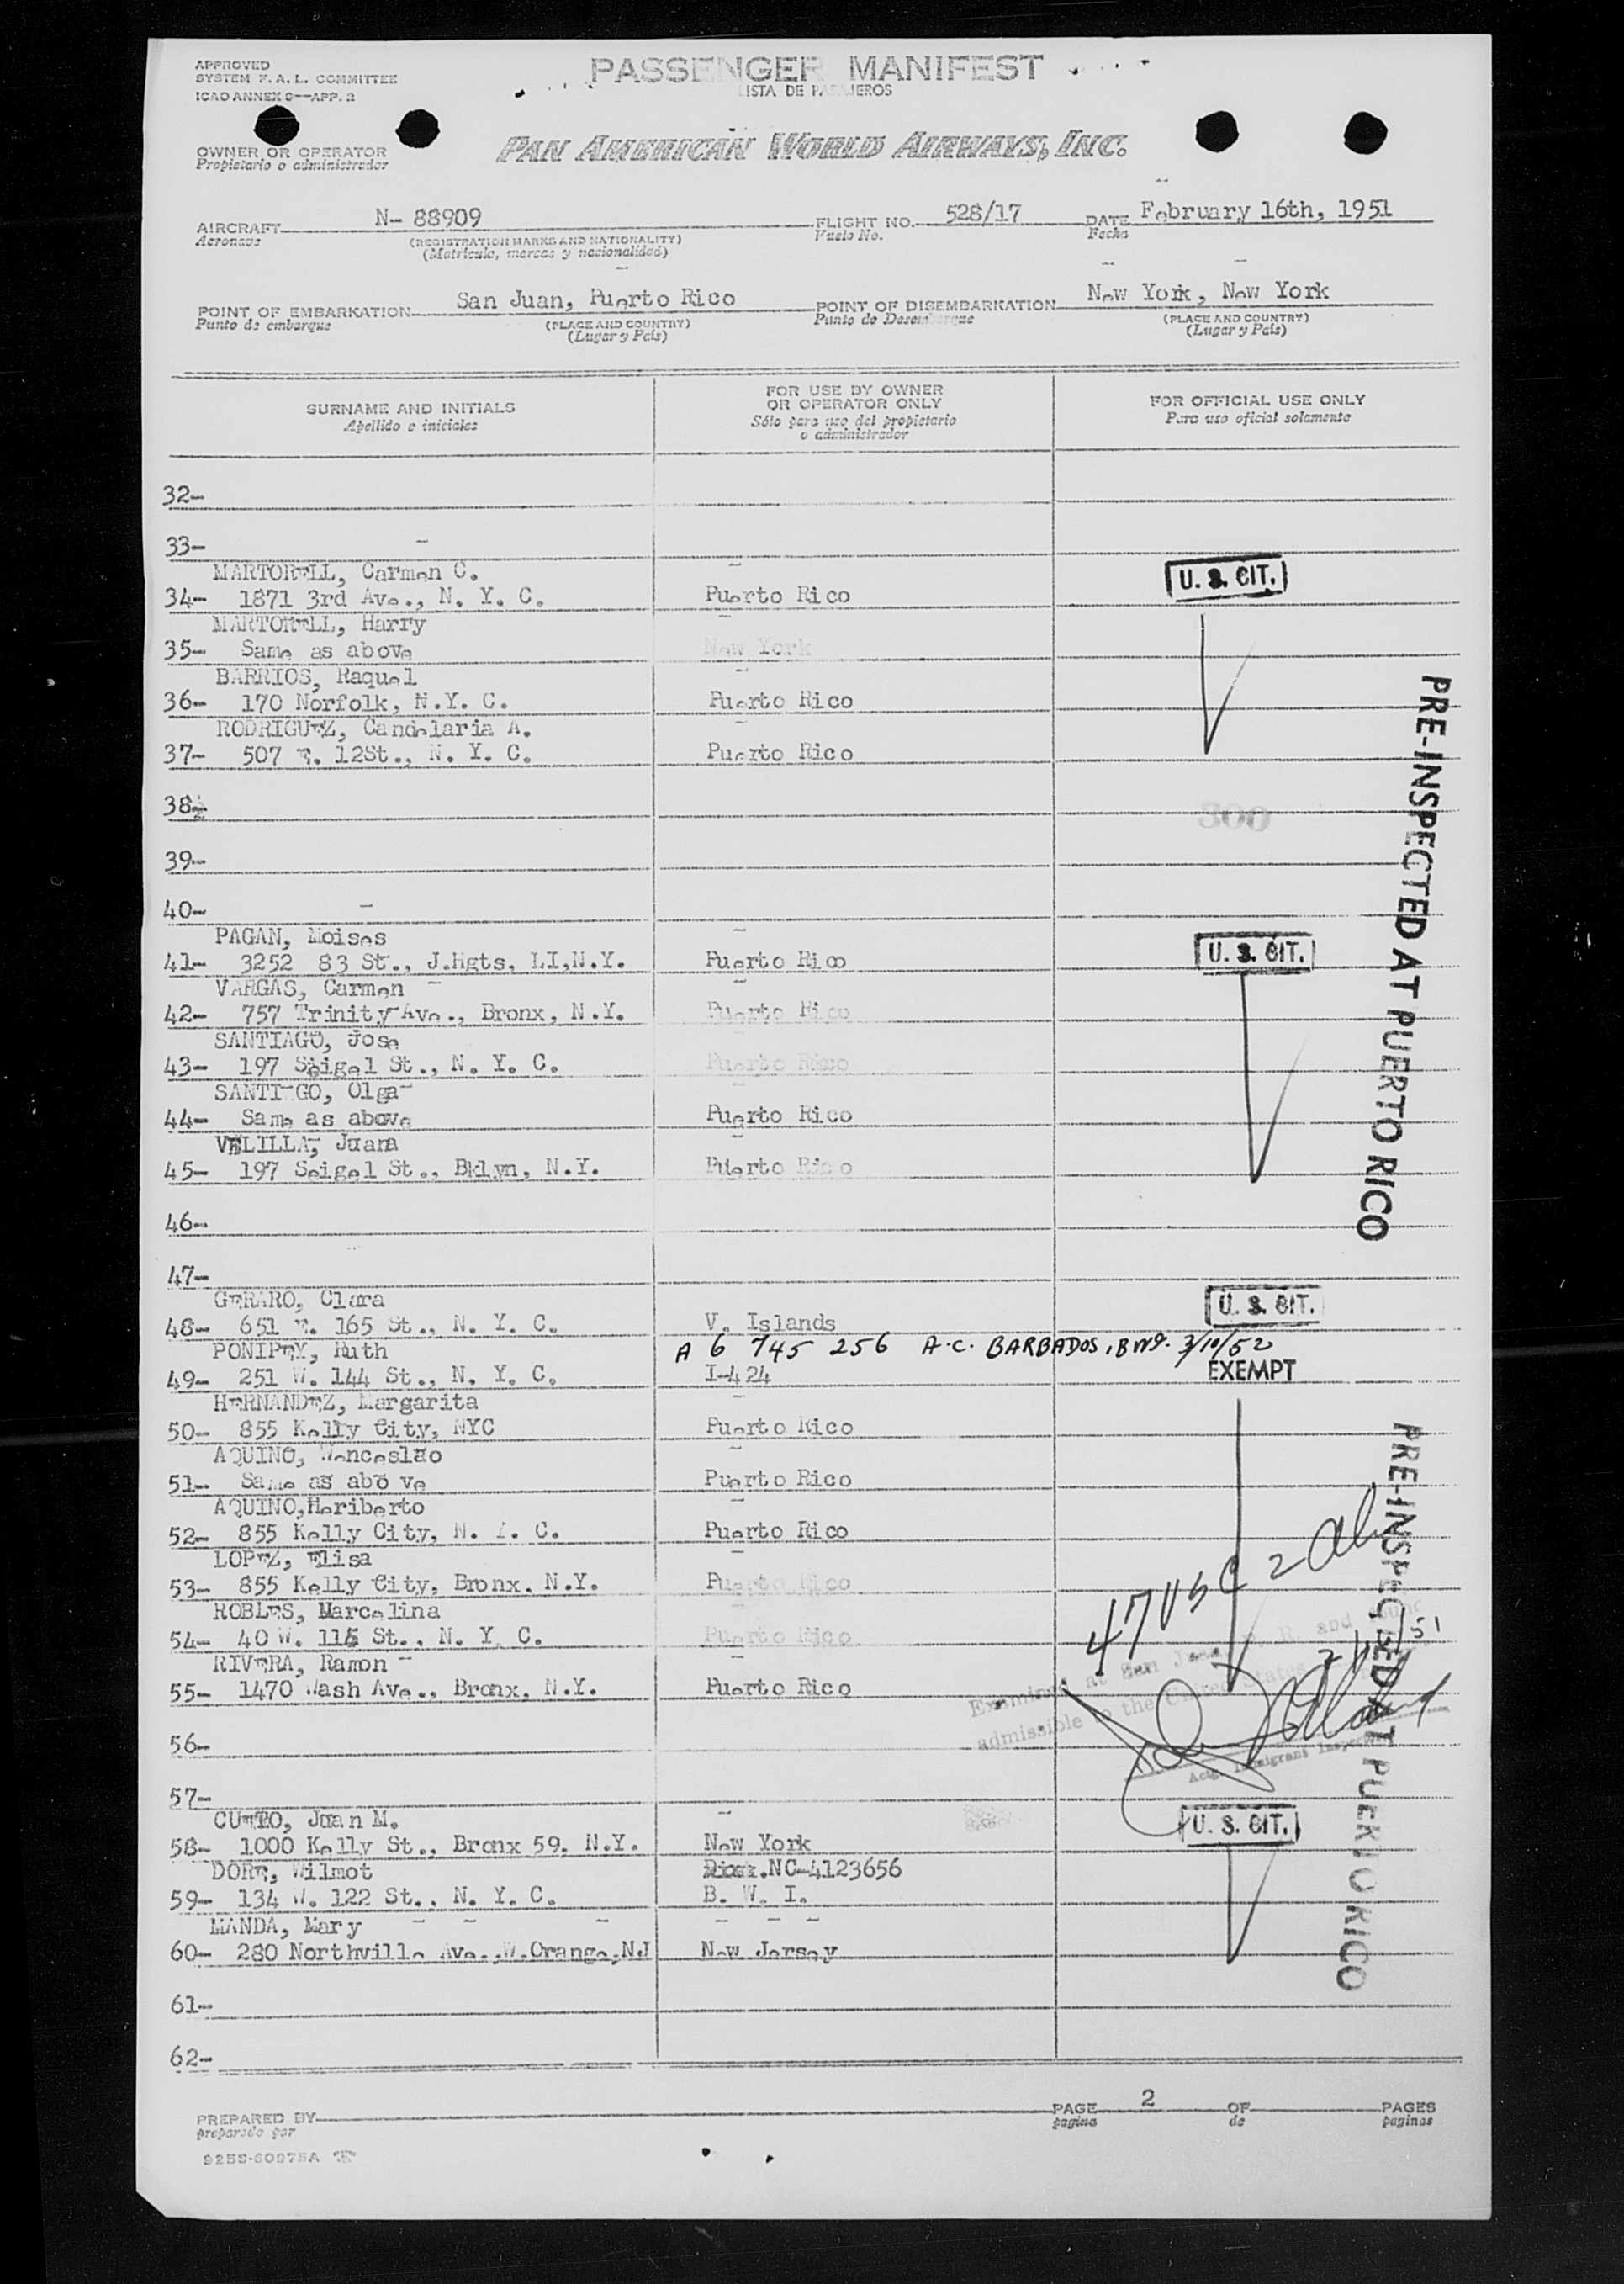 APPROVED
SYSTEM F. A. L. COMMITTEE
ICAO ANNEX 9—APP. 2
PASSENGER MANIFEST
LISTA DE PASAJEROS
OWNER OR OPERATOR
Propietario o administrador
PAN AMERICAN WORLD AIRWAYS, INC.
AIRCRAFT N- 88909 FLIGHT NO. 528/17 DATE February 16th, 1951
Aeronave (REGISTRATION MARKS AND NATIONALITY) Vuelo No. Fecha
(Matricula, marcas y nacionalidad)
POINT OF EMBARKATION San Juan, Puerto Rico POINT OF DISEMBARKATION New York, New York
Punto de embarque (PLACE AND COUNTRY) Punto de Desembarque (PLACE AND COUNTRY)
(Lugar y País) (Lugar y País)
SURNAME AND INITIALS FOR USE BY OWNER OR OPERATOR ONLY FOR OFFICIAL USE ONLY
Apellido e iniciales Sólo para uso del propietario o administrador Para uso oficial solamente
32-
33-
MARTORELL, Carmen C. U. S. CIT.
34- 1871 3rd Ave., N. Y. C. Puerto Rico
MARTORELL, Harry
35- Same as above New York
BARRIOS, Raquel
36- 170 Norfolk, N.Y. C. Puerto Rico
RODRIGUEZ, Candelaria A.
37- 507 E. 12St., N. Y. C. Puerto Rico
38- 300
39-
40-
PAGAN, Moises U. S. CIT.
41- 3252 83 St., J.Hgts, LI,N.Y. Puerto Rico
VARGAS, Carmen
42- 757 Trinity Ave., Bronx, N.Y. Puerto Rico
SANTIAGO, Jose
43- 197 Seigel St., N. Y. C. Puerto Rico
SANTI GO, Olga
44- Same as above Puerto Rico
VELILLA, Juana
45- 197 Seigel St., Bklyn, N.Y. Puerto Rico
46-
47-
GERARO, Clara U. S. CIT.
48- 651 E. 165 St., N. Y. C. V. Islands
PONIPEY, Ruth A 6 745 256 A.C. BARBADOS, BWI. 3/10/52
49- 251 W. 144 St., N. Y. C. I-424 EXEMPT
HERNANDEZ, Margarita
50- 855 Kelly City, NYC Puerto Rico
AQUINO, Wenceslao
51- Same as abo ve Puerto Rico
AQUINO,Heriberto
52- 855 Kelly City, N. Y. C. Puerto Rico
LOPEZ, Elisa
53- 855 Kelly City, Bronx, N.Y. Puerto Rico
ROBLES, Marcelina
54- 40 W. 115 St., N. Y C. Puerto Rico
RIVERA, Ramon
55- 1470 Wash Ave., Bronx, N.Y. Puerto Rico
56-
57-
CUETO, Juan M. U. S. CIT.
58- 1000 Kelly St., Bronx 59, N.Y. New York
DORE, Wilmot NC-4123656
59- 134 W. 122 St., N. Y. C. B. W. I.
MANDA, Mary
60- 280 Northville Ave.,W.Orange,NJ New Jersey
61-
62-
PRE-INSPECTED AT PUERTO RICO
PRE-INSPECTED AT PUERTO RICO
47 USC 2 al
Examined at San Juan P. R. and found
admissible to the United States
Actg. Immigrant Inspector
PREPARED BY PAGE 2 OF PAGES
preparado por pagina de paginas
925S-60975A